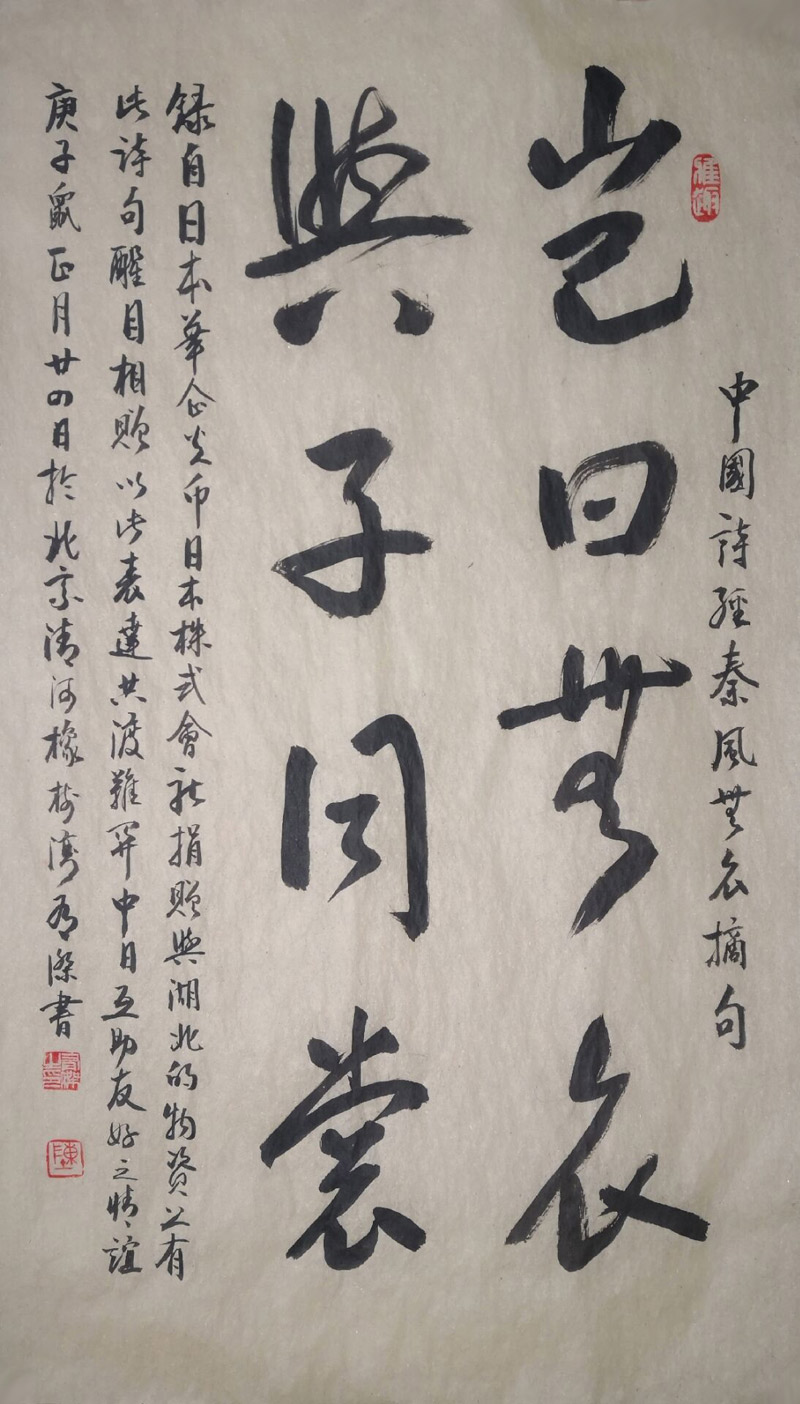 中國詩經秦風無衣摘句
豈曰無衣
與子同裳
録自日本華企炎帝日本株式會社捐贈與湖北的物資上有
此詩句醒目相贈以此表達共渡難関中日互助友好之情誼
庚子鼠正月廿四日於北京清河橡樹灣有傑書
陳